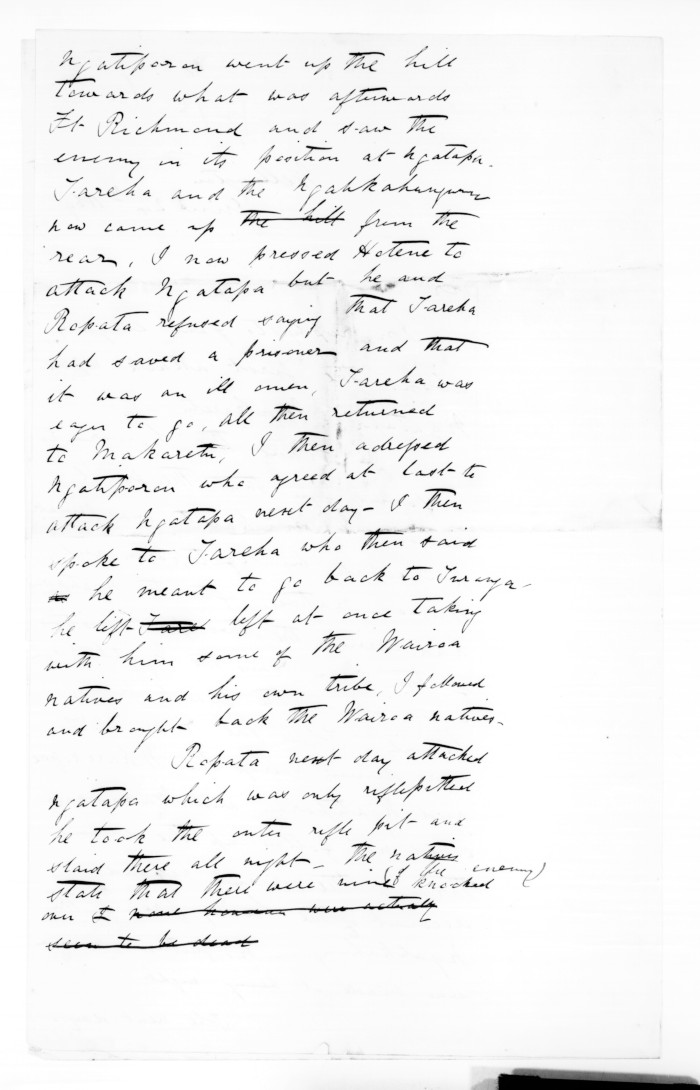 Ngatiporou went up the hill
towards what was afterwards
Ft Richmond and saw the
enemy in its position at Ngatapa.
Tareha and the Ngatikahungunu
now came up the hill from the
rear, I now pressed Hotene to
attack Ngatapa but he and
Ropata refused saying that Tareha
had saved a prisoner and that
it was an ill omen, Tareha was
eager to go, all then returned
to Makaretu, I then adressed
Ngatiporou who agreed at last to
attack Ngatapa next day - I then
spoke to Tareha who then said
he meant to go back to Turanga -
he left Tare left at once taking
with him some of the Wairoa
natives and his own tribe, I followed
and brought back the Wairoa natives.
Ropata next day attacked
Ngatapa which was only riflepitted
he took the outer rifle pit and
staid there all night - the natives
state that there were nine (of the enemy) knocked
over & were actually
seen to be dead